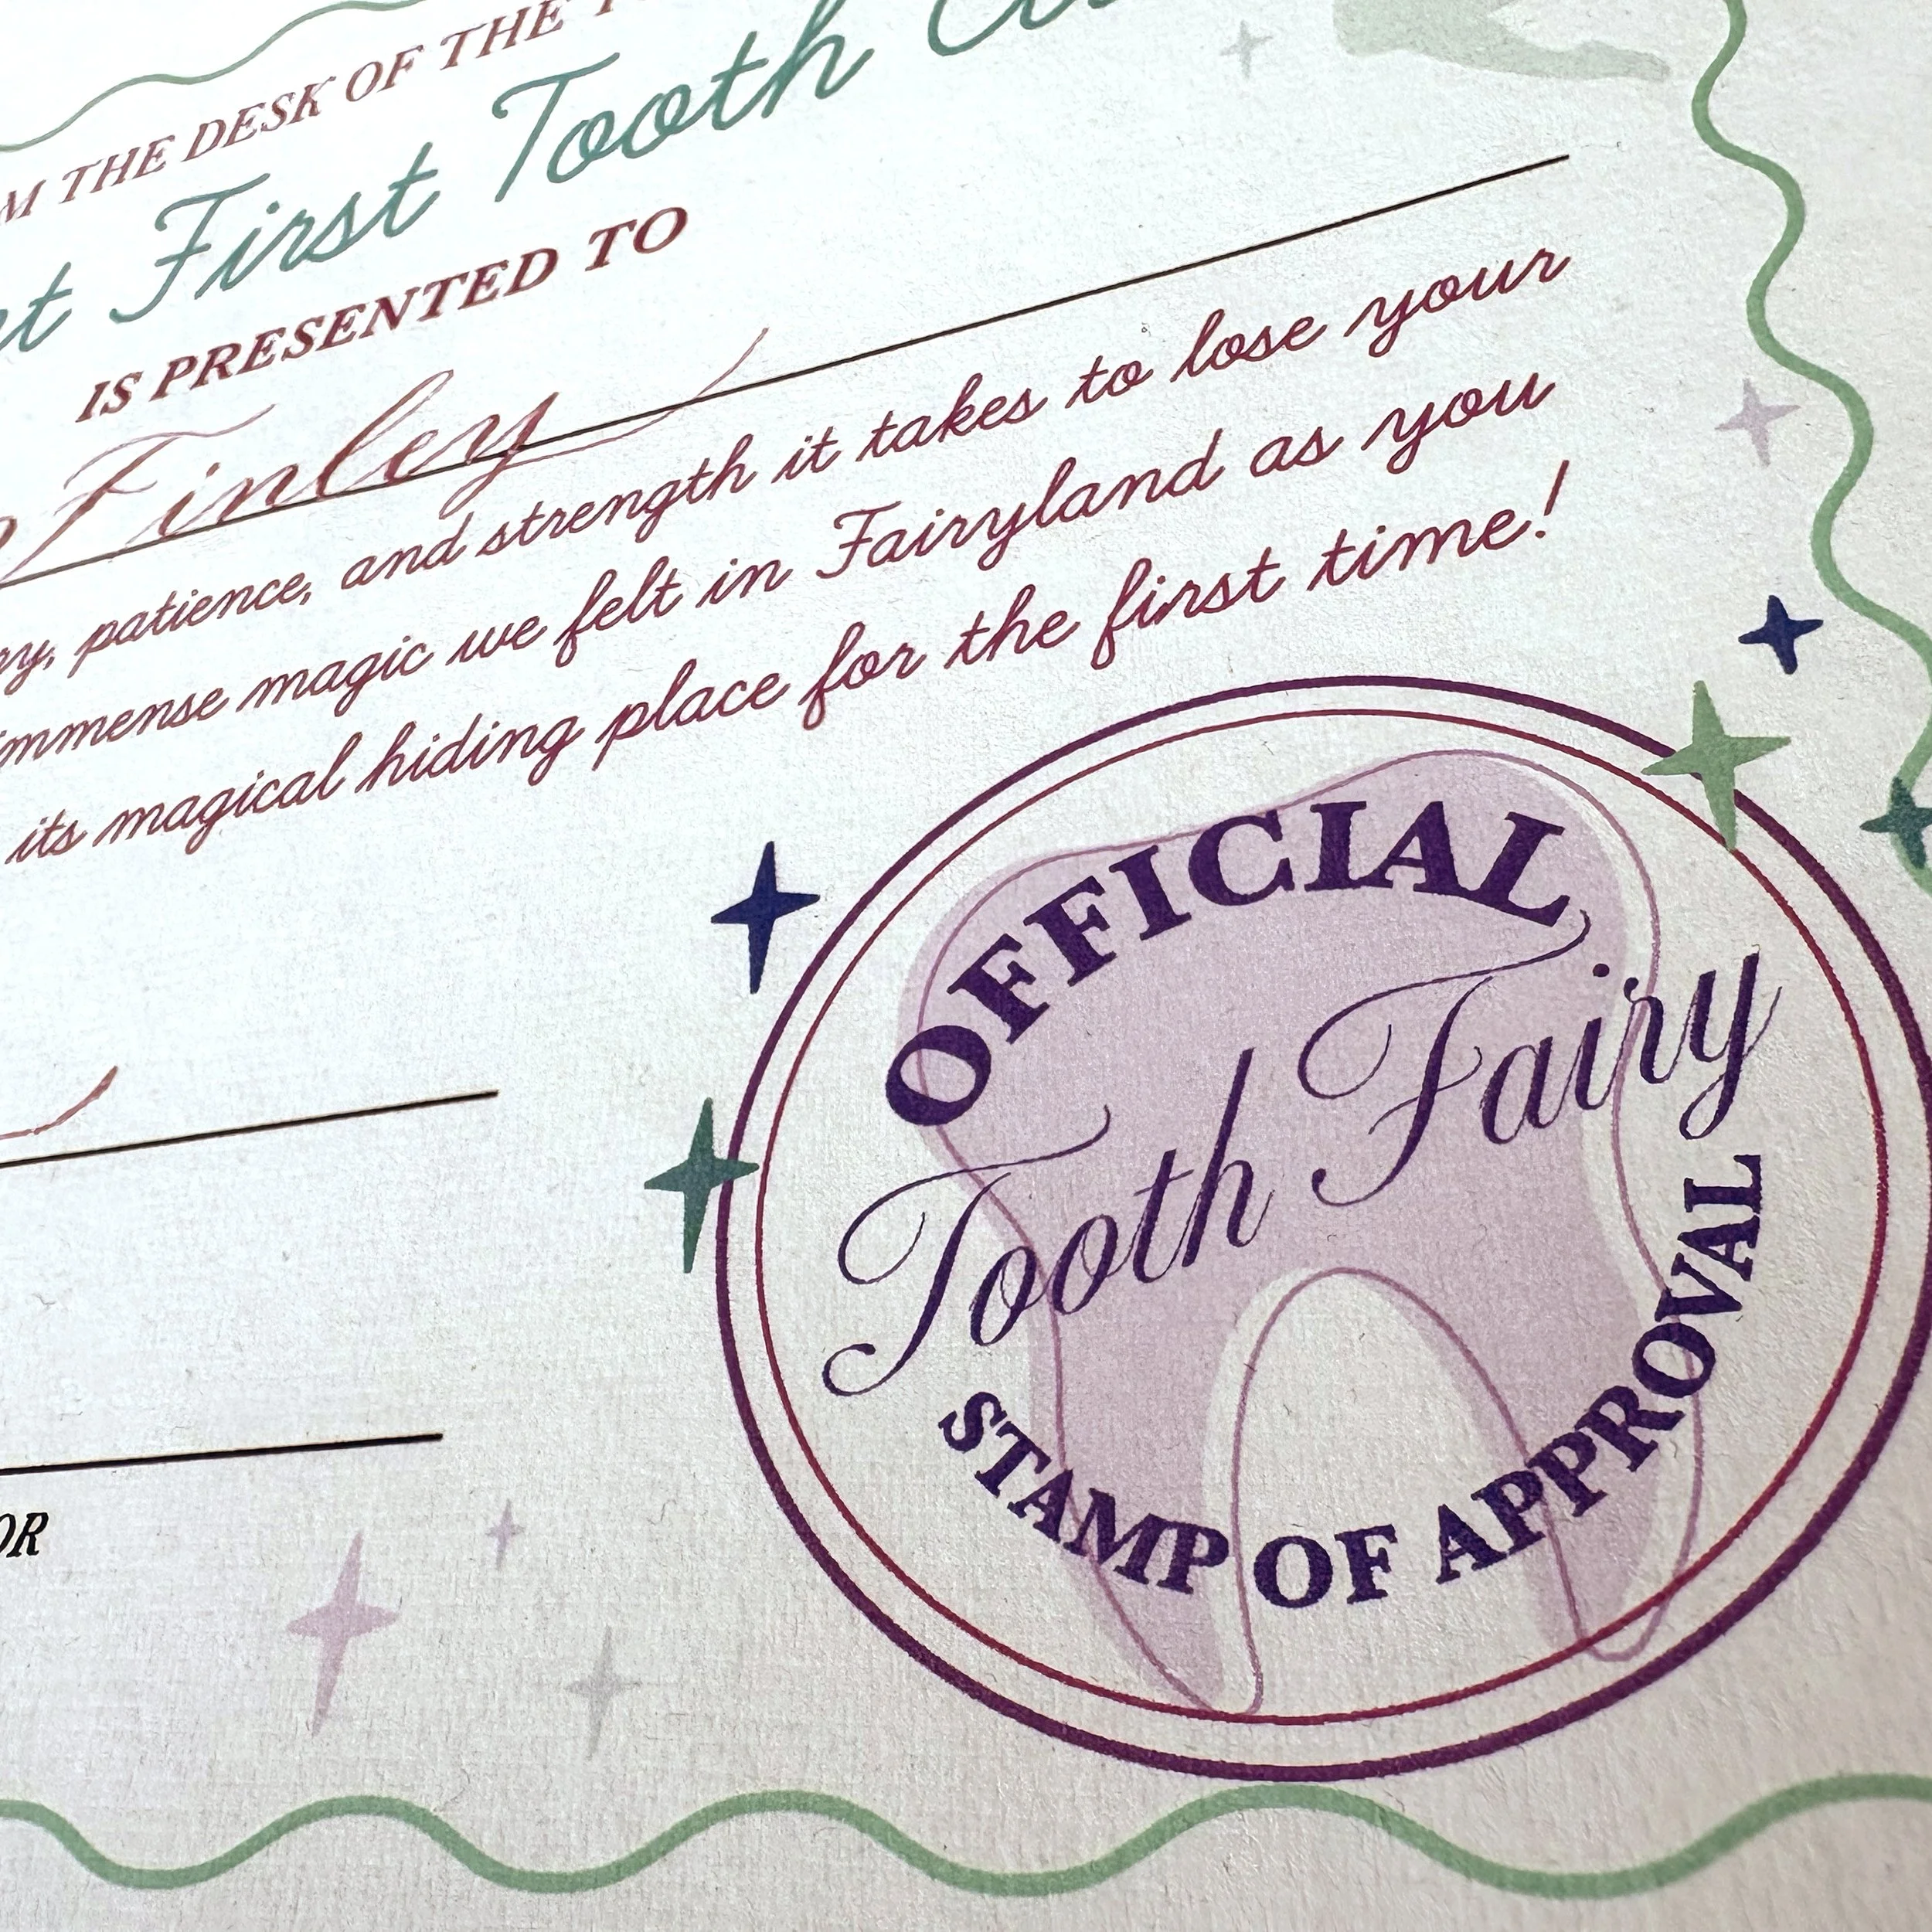 THE DESK OF THE
First Tooth
IS PRESENTED TO
Finley
patience, and strength it takes to lose your
immense magic we felt in Fairyland as you
its magical hiding place for the first time!
OFFICIAL
Tooth Fairy
STAMP OF APPROVAL